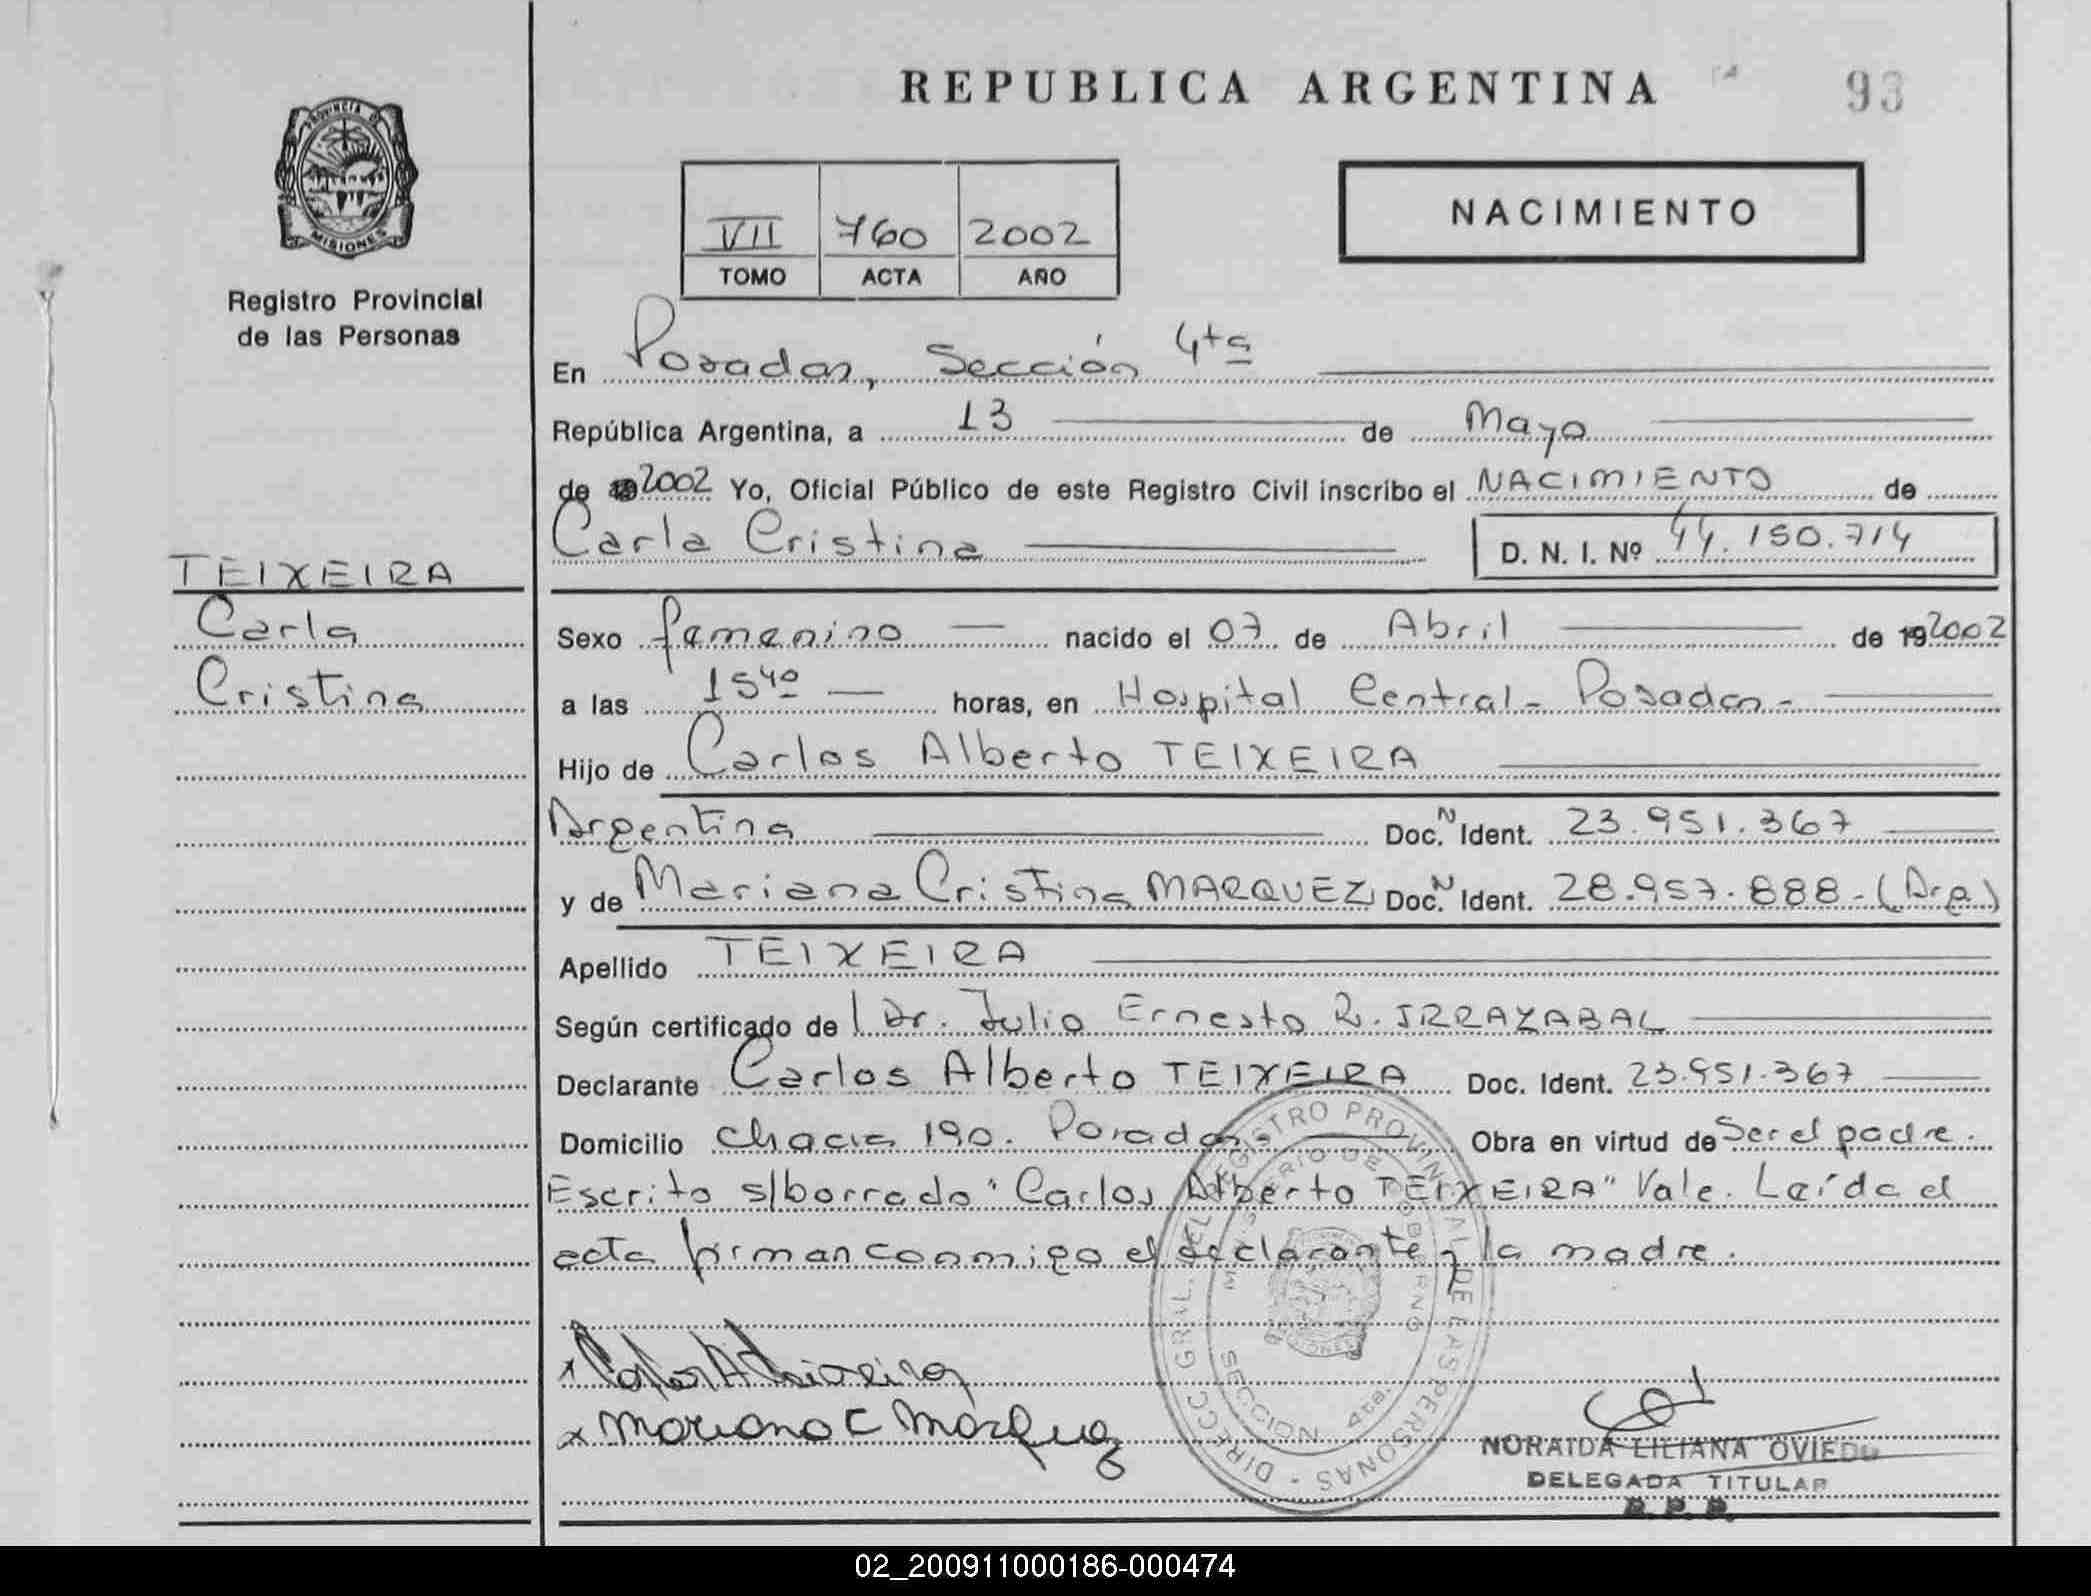 REPUBLICA ARGENTINA
93
PROVINCIA DE
MISIONES
Registro Provincial
de las Personas
VII 760 2002
TOMO ACTA AÑO
NACIMIENTO
En Posadas, Sección 4ta
República Argentina, a 13 de Mayo
de 2002 Yo, Oficial Público de este Registro Civil inscribo el NACIMIENTO de
Carla Cristina D. N. I. Nº 44.150.714
TEIXEIRA
Carla
Cristina
Sexo femenino nacido el 07 de Abril de 192002
a las 1540 horas, en Hospital Central - Posadas -
Hijo de Carlos Alberto TEIXEIRA
Argentina Doc.N Ident. 23.951.367
y de Mariana Cristina MARQUEZ Doc.N Ident. 28.957.888 - (Arg)
Apellido TEIXEIRA
Según certificado de l Dr. Julio Ernesto R. IRRAZABAL
Declarante Carlos Alberto TEIXEIRA Doc. Ident. 23.951.367
Domicilio chacra 190. Posadas - Obra en virtud de Ser el padre.
Escrito s/borrado "Carlos Alberto TEIXEIRA" Vale. Leída el
acta firman conmigo el declarante y la madre.
DIRECC GRAL. DEL REGISTRO PROVINCIAL DE LAS PERSONAS -
MINISTERIO DE GOBIERNO
SECCION 4ta.
x Carlos A Teixeira
x Mariana C Márquez
NORAIDA LILIANA OVIEDO
DELEGADA TITULAR
R. P. P.
02_200911000186-000474